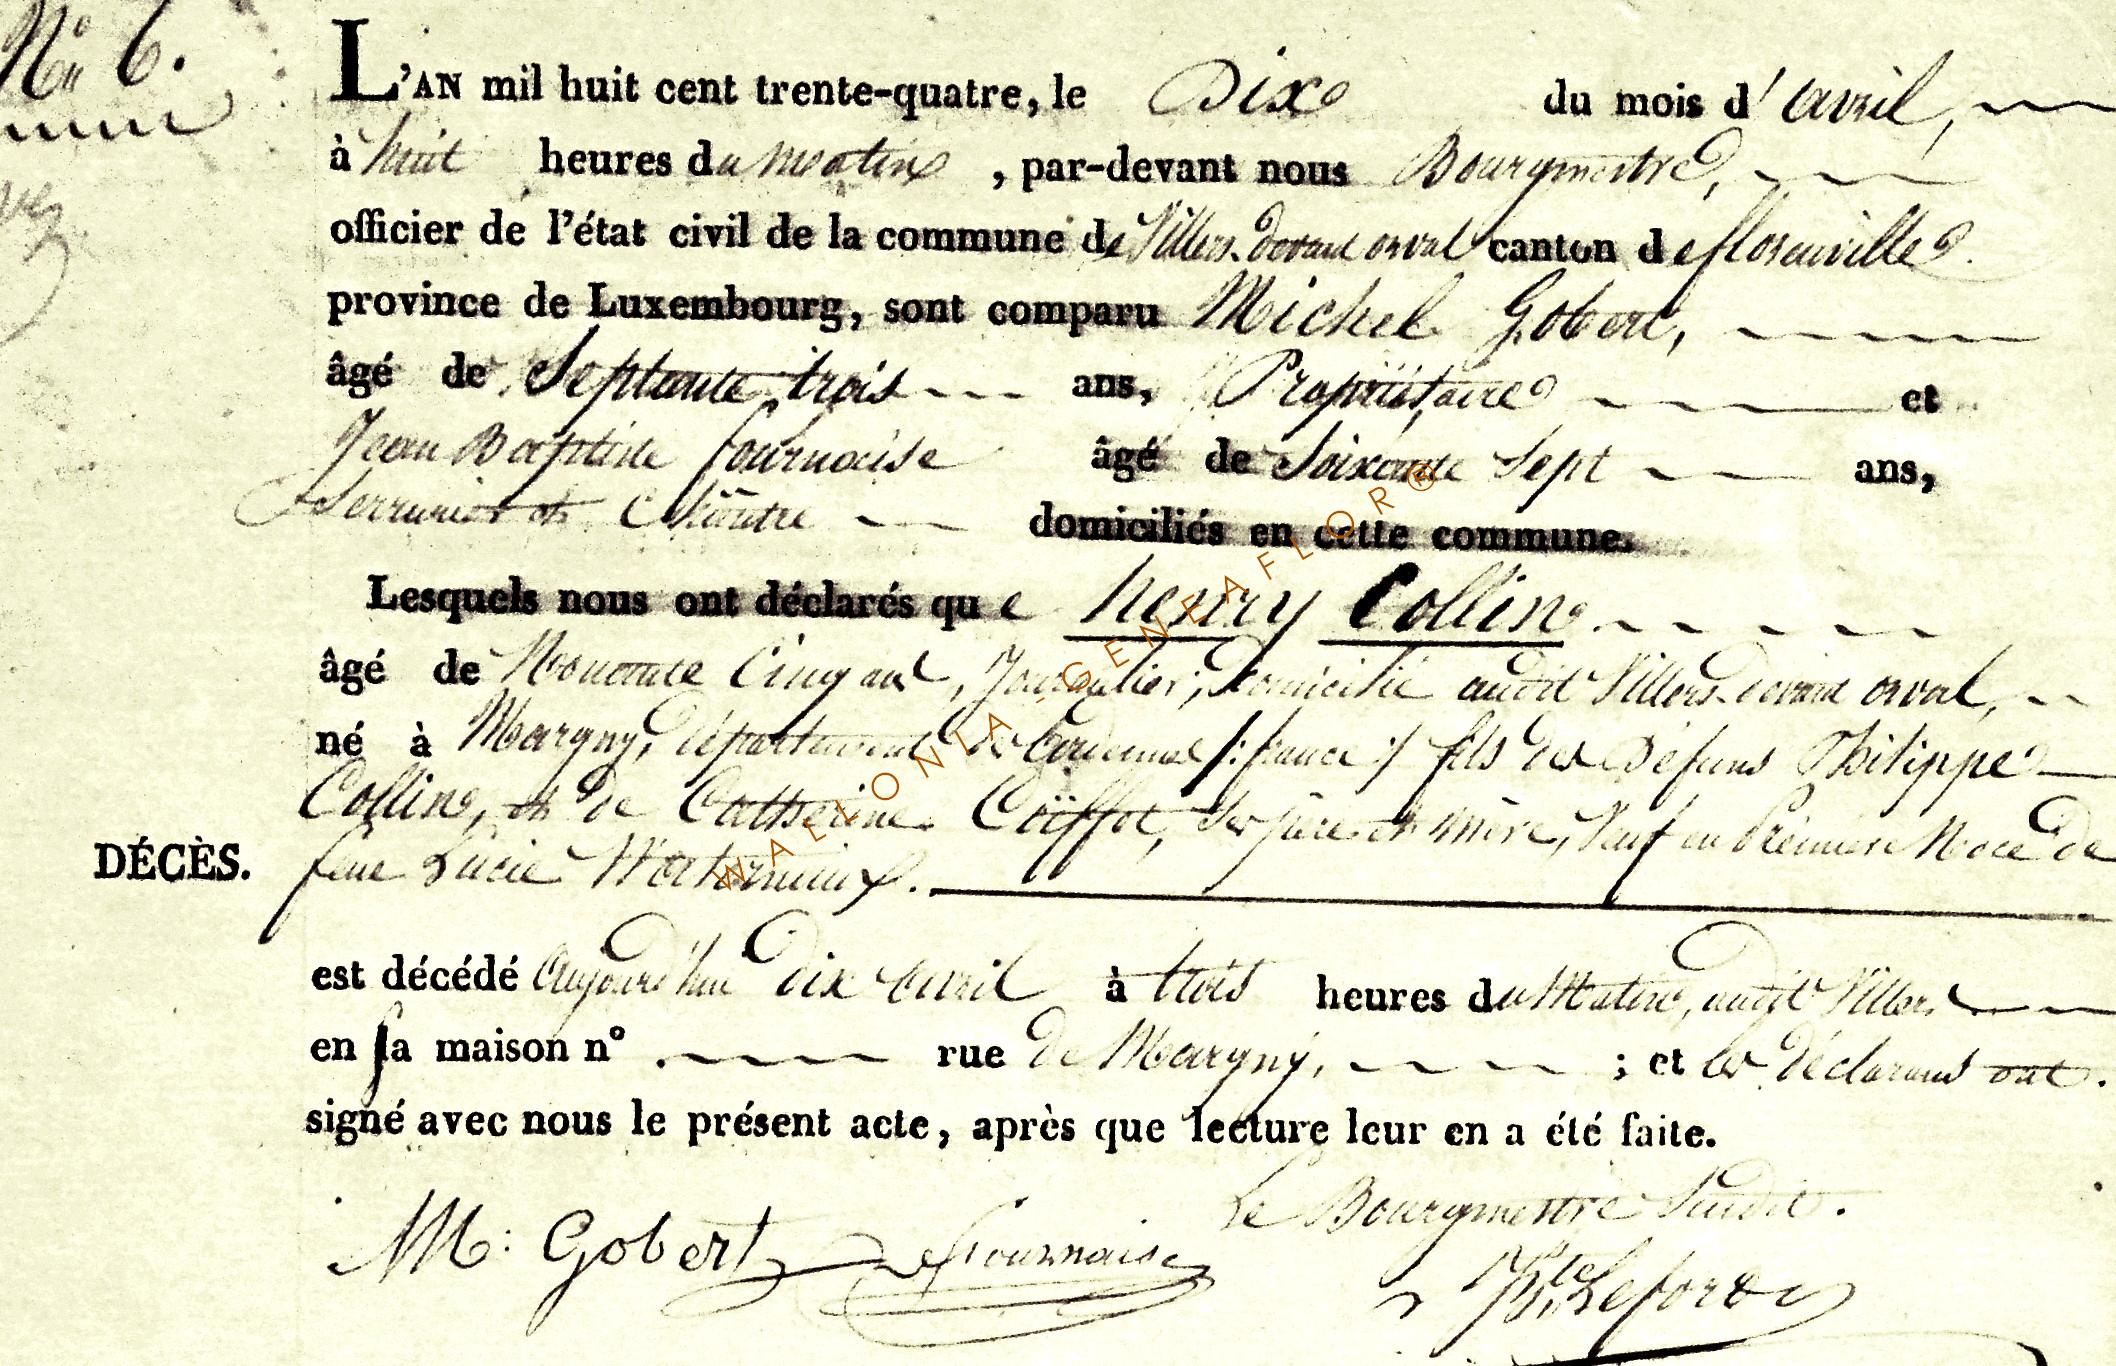 N° 6.
L'AN mil huit cent trente-quatre, le Dix du mois d'avril,
à huit heures du matin, par-devant nous Bourgmestre,
officier de l'état civil de la commune de Villers-devant orval canton de florenville
province de Luxembourg, sont comparu Michel Gobert,
âgé de Septante trois ans, Propriétaire et
Jean Baptiste fournaise âgé de Soixante Sept ans,
Serrurier et domiciliés en cette commune.
Lesquels nous ont déclarés que henry Collin
âgé de Nonante Cinq ans, Journalier, Domicilié audit Villers-devant orval,
né à Margny, département des ardennes /:france:/ fils des Défuns Philippe
Collin, et de Catherine Coiffot, Ses père et mère, Veuf en Première Noce de
DÉCÈS. feue Lucie
est décédé aujourd'hui dix avril à trois heures du Matin, audit Villers
en sa maison n° . rue de Margny, ; et les déclarans ont
signé avec nous le présent acte, après que lecture leur en a été faite.
Le Bourgmestre Susdit.
M: Gobert fournaise
Lefort
WALLONIA-GENEAFLOR®